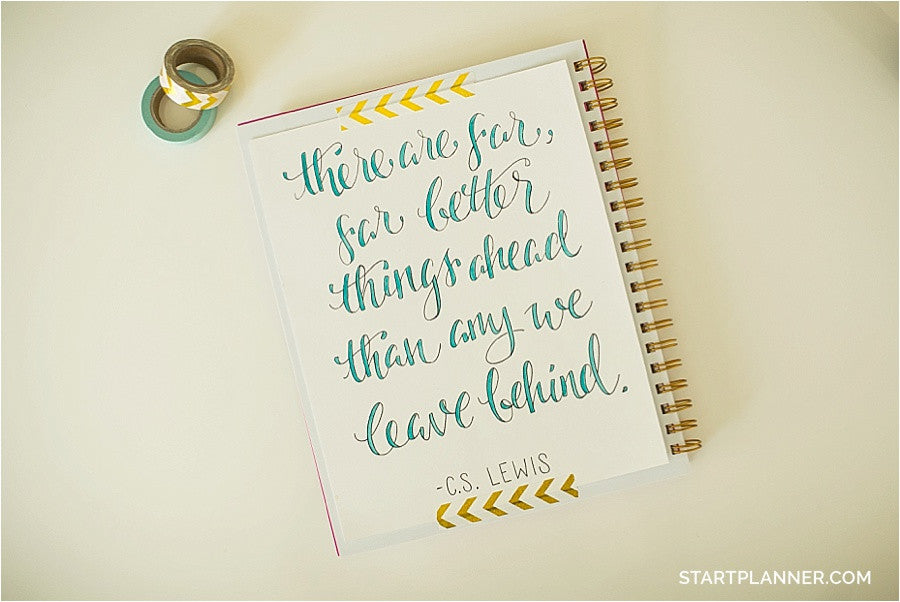 there are far,
far better
things ahead
than any we
leave behind.
-C.S. LEWIS
STARTPLANNER.COM